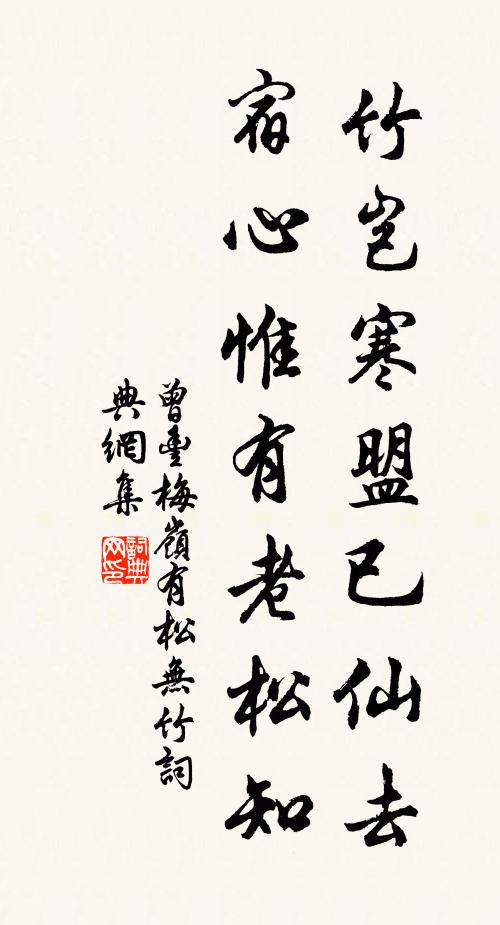 竹岂寒盟已仙去
宿心惟有老松知
曾豐梅嶺有松無竹詞
典網集
詞典網印